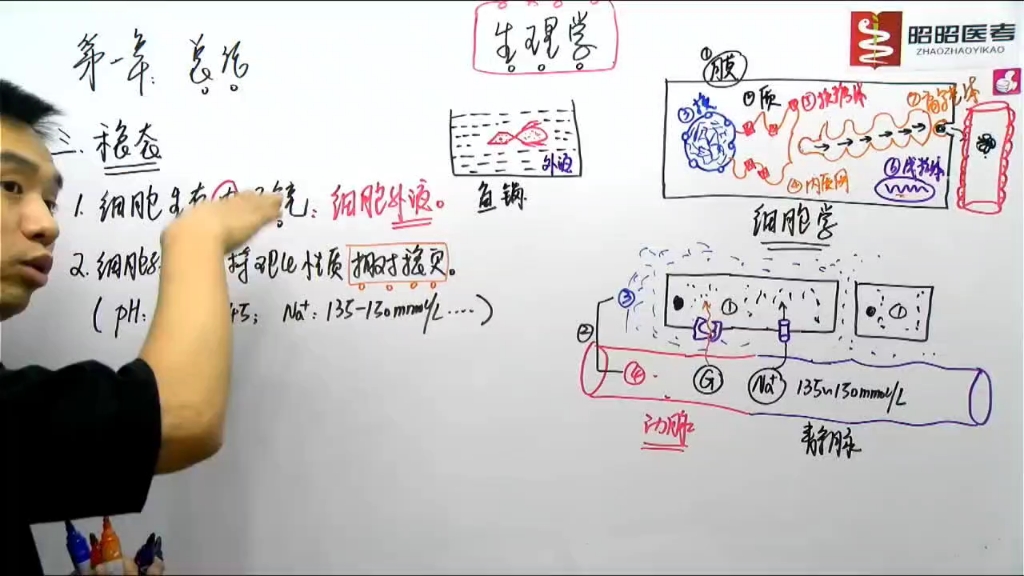 生理学
昭昭医考
ZHAOZHAOYIKAO
第一章: 总论
三. 稳态
1. 细胞生存 境: 细胞外液。
2. 细胞 持理化性质 相对稳定。
(pH: 45; Na⁺: 135-150mmol/L....)
外液
鱼缸
① 膜
② 质
③ 核
④ 内质网
⑤ 核糖体
⑥ 线粒体
⑦ 高尔基体
细胞学
① ①
② ③
④ G Na⁺ 135~150mmol/L
动脉
静脉